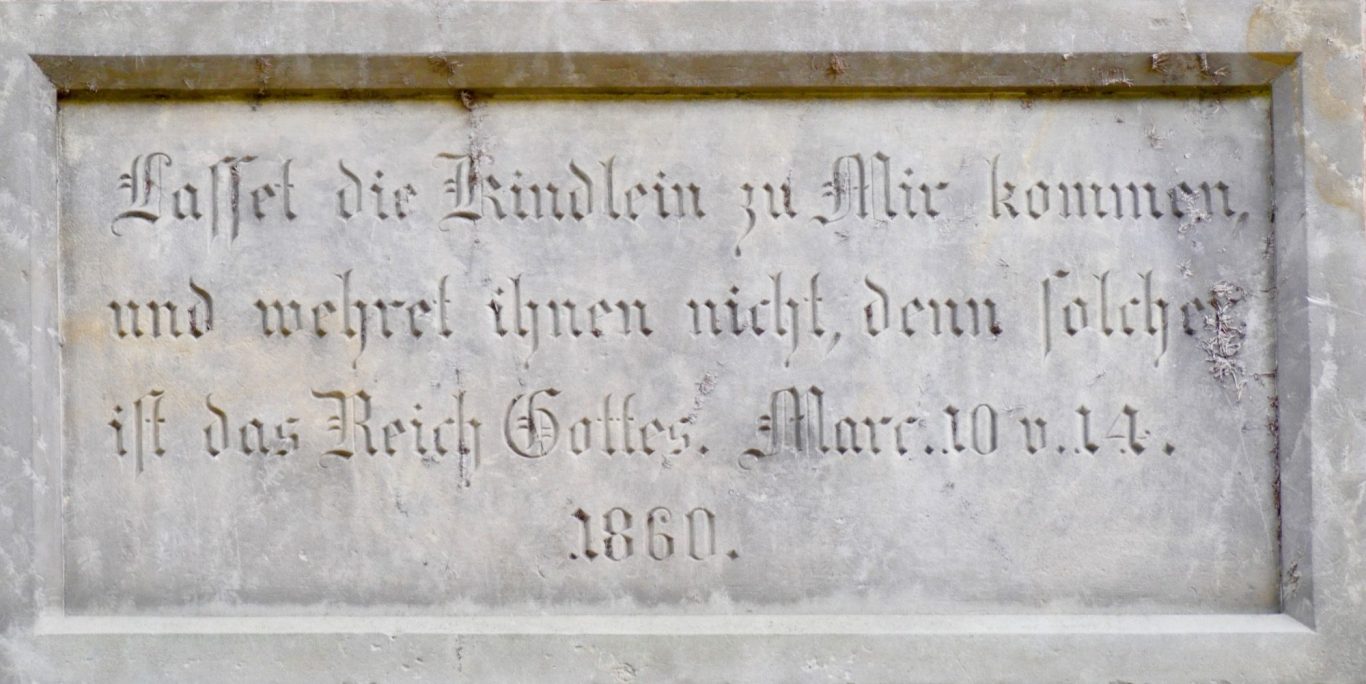 Lasset die Kindlein zu Mir kommen,
und wehret ihnen nicht, denn solcher
ist das Reich Gottes. Marc. 10 v. 14.
1860.